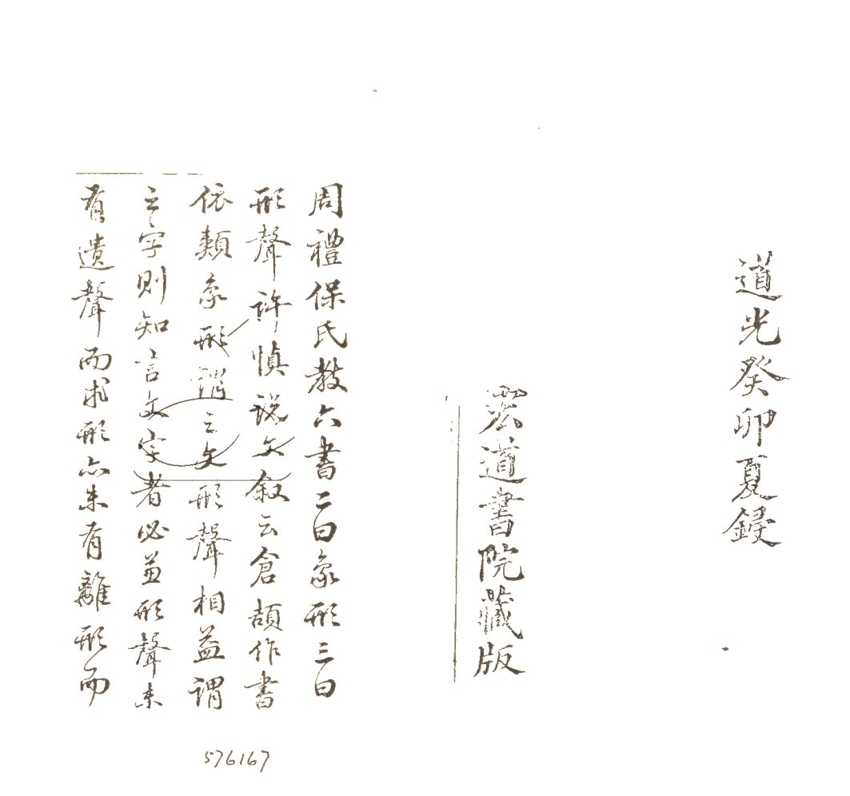 道光癸卯夏鋟
宏道書院藏版
周禮保氏教六書二曰象形三曰
形聲許慎說文叙云倉頡作書
依類象形謂之文形聲相益謂
之字則知言文字者必兼形聲未
有遺聲而求形亦未有離形而
576167